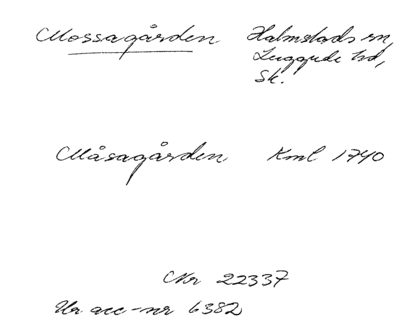 Mossagården Halmstads sn,
Luggude hd,
Sk.
Måsagården Kml 1740
Nr 22337
Ur acc-nr 6382